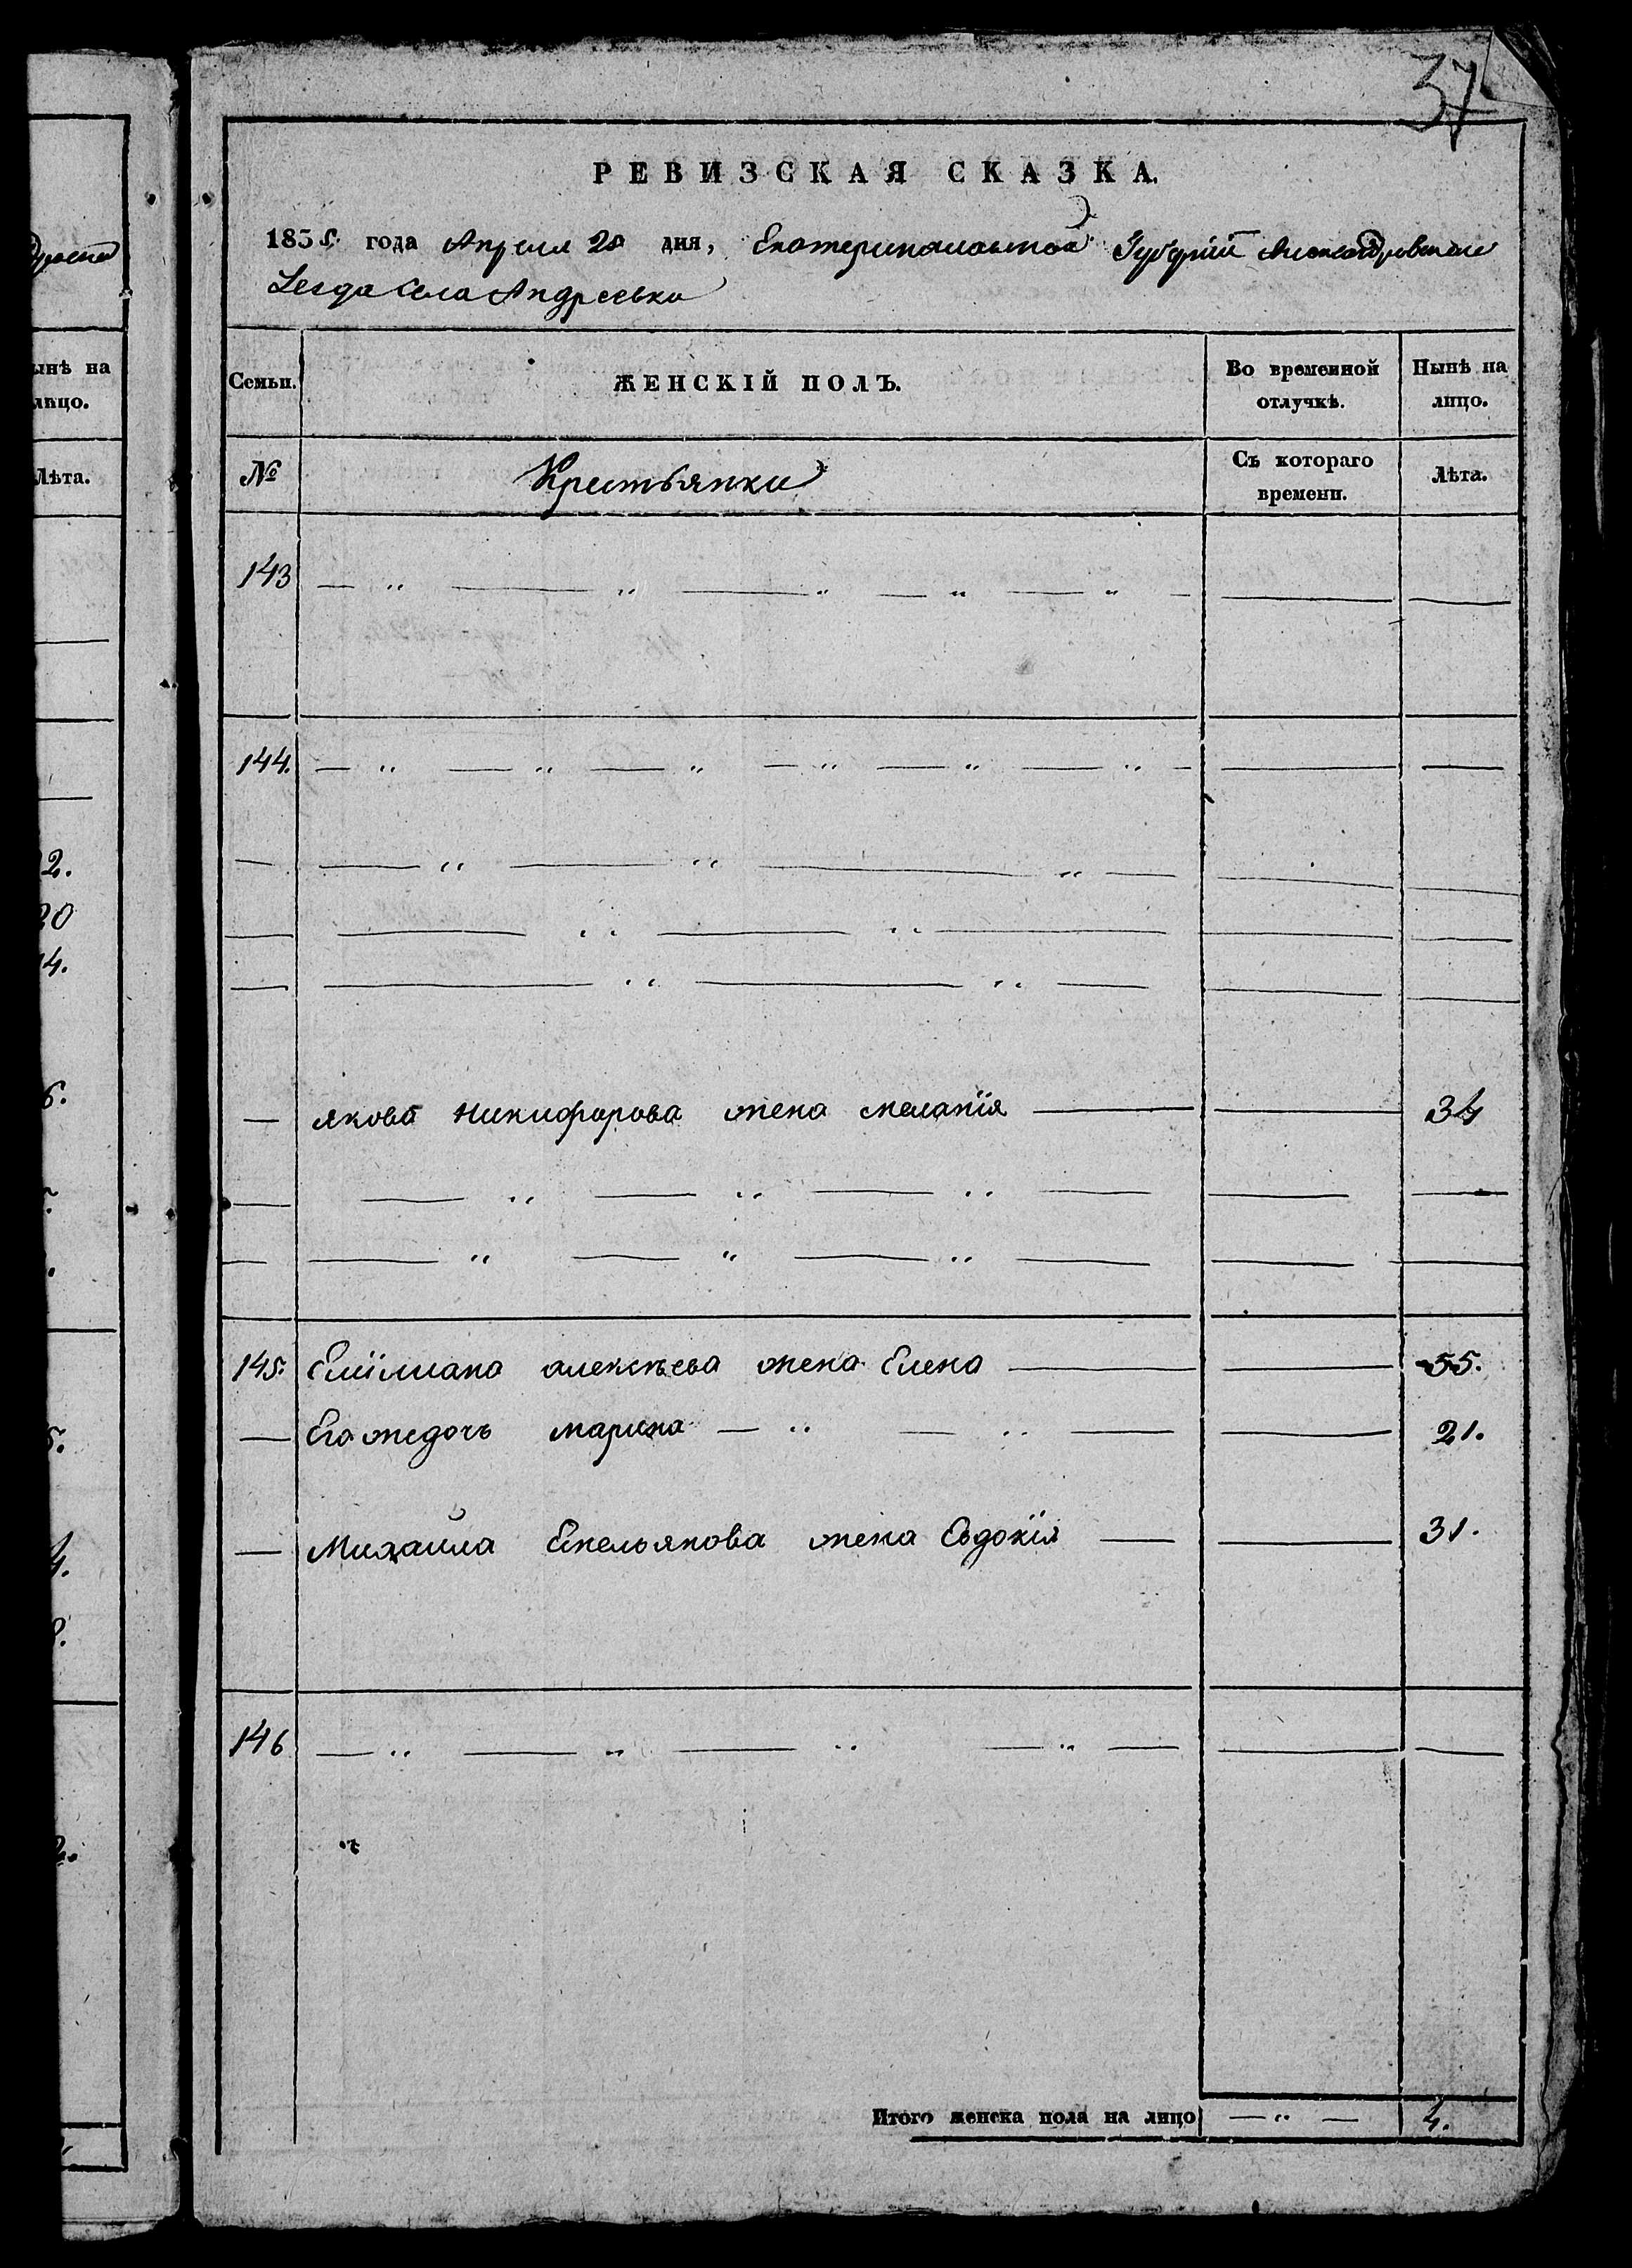 37
РЕВИЗСКАЯ СКАЗКА.
1835. года Апреля 28 дня, Екатеринославской Губернии Александровского
Уезда Села Андреевки
Семьи.
ЖЕНСКІЙ ПОЛЪ.
Во временной отлучкѣ.
Нынѣ на лицо.
№
Крестьянки
Съ котораго времени.
Лѣта.
143
144.
— Якова Никифорова жена Меланія — — 34
145. Емілиана алексѣева жена Елена — — 55.
— Его жедочь марина — — 21.
— Михайла Емельянова жена Евдокія — — 31.
146
Итого женска пола на лицо — 4.
ынѣ на
лицо.
Лѣта.
2.
20
14.
6.